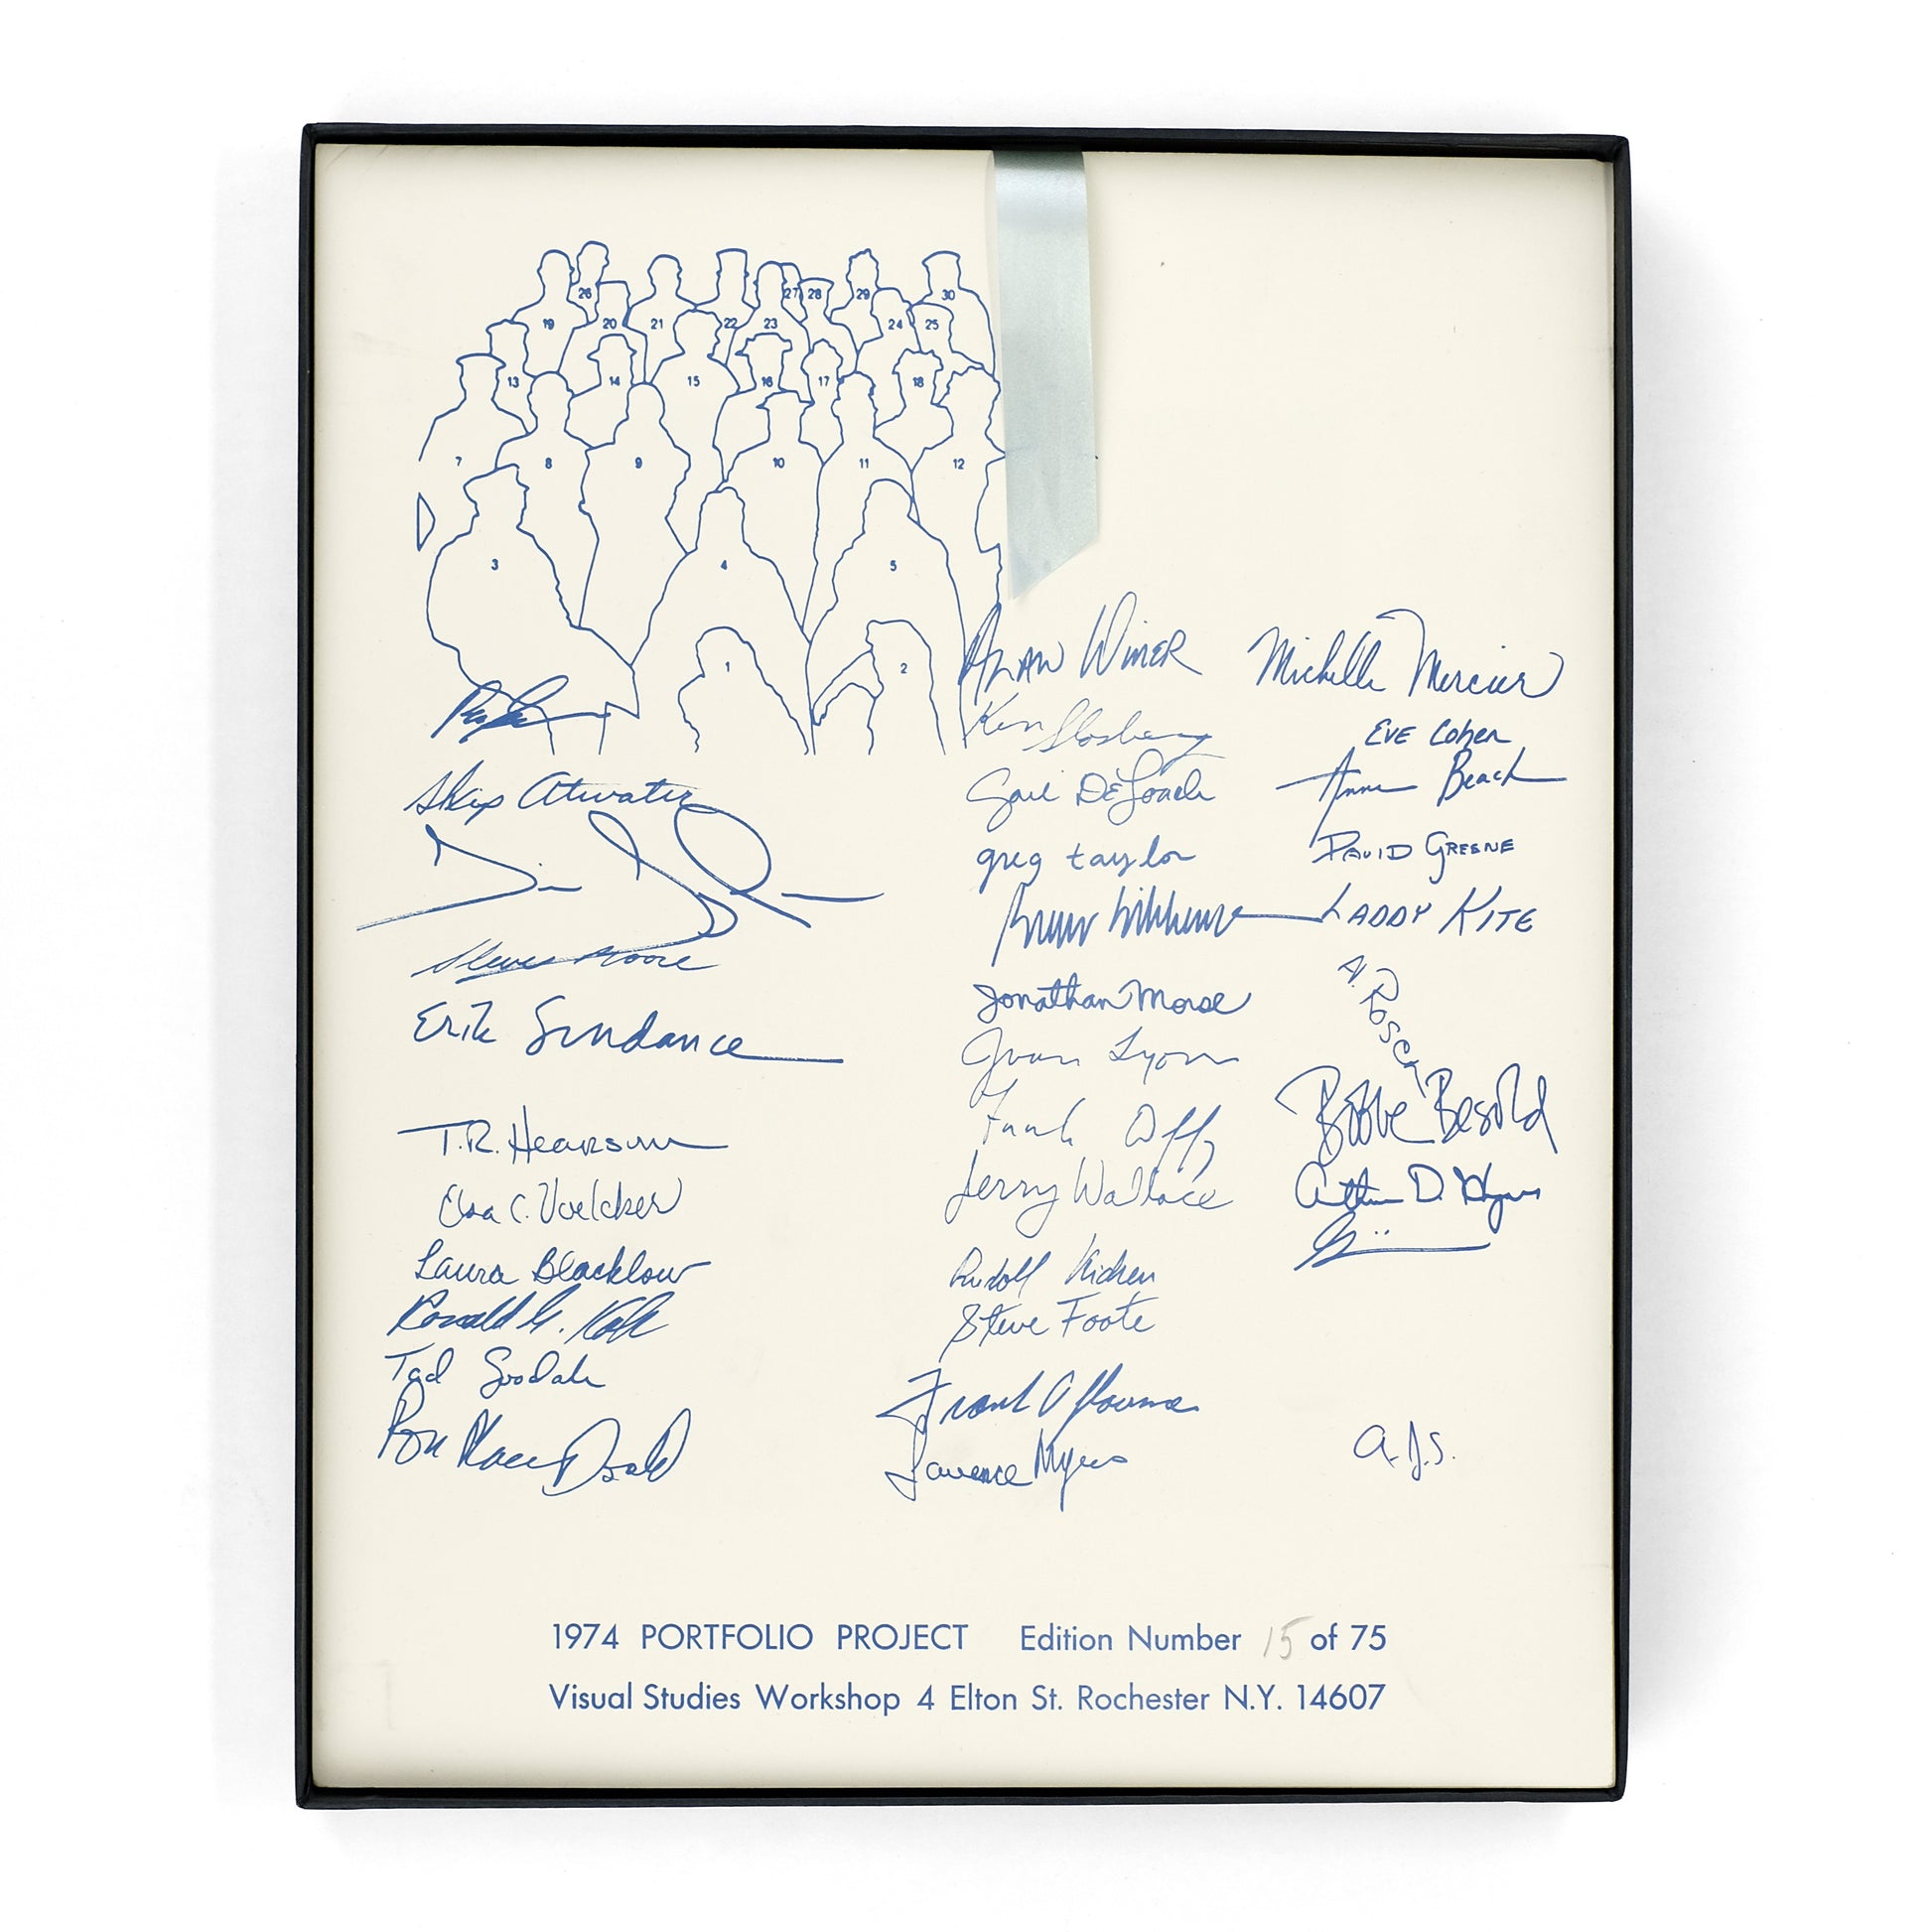 26 27 28 29 30
19 20 21 22 23 24 25
13 14 15 16 17 18
7 8 9 10 11 12
3 4 5
1 2
Skip Atwater
Steven Moore
Erik Sundance
T.R. Hearsum
Elsa C. Voelcker
Laura Blacklow
Ronald G.
Tad Goodale
Ron MacDonald
ALAN WINER
Ken Slosberg
Gail DeLoach
greg taylor
Jonathan Morse
Joan Lyons
Jerry Wallace
Rudolf
Steve Foote
Frank
Lawrence Myers
Michelle Mercier
EVE Cohen
Anne Beach
DAVID GREENE
LADDY KITE
Bobbe Besold
Arthur D.
A.J.S.
1974 PORTFOLIO PROJECT Edition Number 15 of 75
Visual Studies Workshop 4 Elton St. Rochester N.Y. 14607